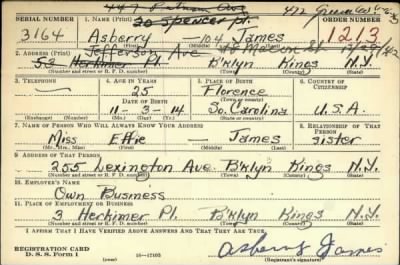 447 Putnam Ave
422 Greene Av
SERIAL NUMBER 1. NAME (Print) 20 Spencer Pl. ORDER NUMBER
3164 Asberry — 104 James 1213
Jefferson Ave 48 Macon St
2. ADDRESS (Print)
53 Herkimer Pl. B'klyn Kings N.Y.
(Number and street or R. F. D. number) (Town) (County) (State)
3. TELEPHONE 4. AGE IN YEARS 5. PLACE OF BIRTH 6. COUNTRY OF CITIZENSHIP
— 25 Florence
DATE OF BIRTH (Town or county)
11-3-14 So. Carolina U.S.A.
(Exchange) (Number) (Mo.) (Day) (Yr.) (State or country)
7. NAME OF PERSON WHO WILL ALWAYS KNOW YOUR ADDRESS 8. RELATIONSHIP OF THAT PERSON
Miss Effie — James sister
(Mr., Mrs., Miss) (First) (Middle) (Last)
9. ADDRESS OF THAT PERSON
255 Lexington Ave. B'klyn Kings N.Y.
(Number and street or R. F. D. number) (Town) (County) (State)
10. EMPLOYER'S NAME
Own Business
11. PLACE OF EMPLOYMENT OR BUSINESS
3 Herkimer Pl. B'klyn Kings N.Y.
(Number and street or R. F. D. number) (Town) (County) (State)
I AFFIRM THAT I HAVE VERIFIED ABOVE ANSWERS AND THAT THEY ARE TRUE.
REGISTRATION CARD
D. S. S. Form 1 16—17105 Asberry James
(Registrant's signature)